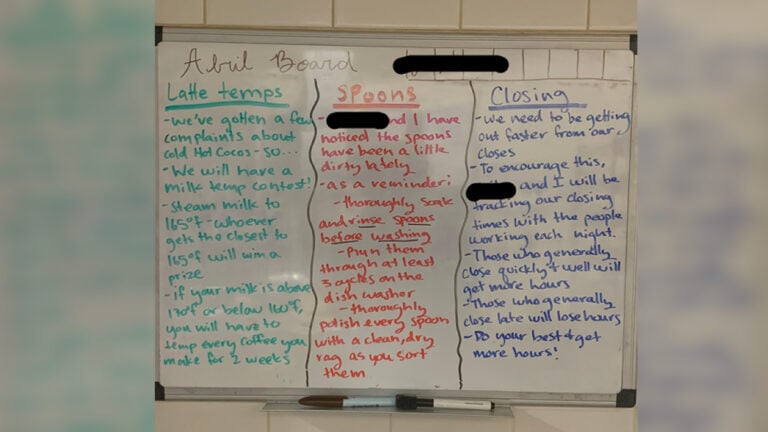 April Board
Latte temps
-we've gotten a few
complaints about
cold Hot Cocos - so...
-We will have a
milk temp contest!
-Steam milk to
165°f -whoever
gets the closest to
165°f will win a
prize
-if your milk is above
170°f or below 160°f,
you will have to
temp every coffee you
make for 2 weeks
Spoons
- and I have
noticed the spoons
have been a little
dirty lately
-as a reminder:
-thoroughly soak
and rinse spoons
before washing
-run them
through at least
3 cycles on the
dish washer
-thoroughly
polish every spoon
with a clean, dry
rag as you sort
them
Closing
-We need to be getting
out faster from our
closes
-To encourage this,
and I will be
tracking our closing
times with the people
working each night.
-Those who generally
close quickly & well will
get more hours
-Those who generally
close late will lose hours
-Do your best & get
more hours!